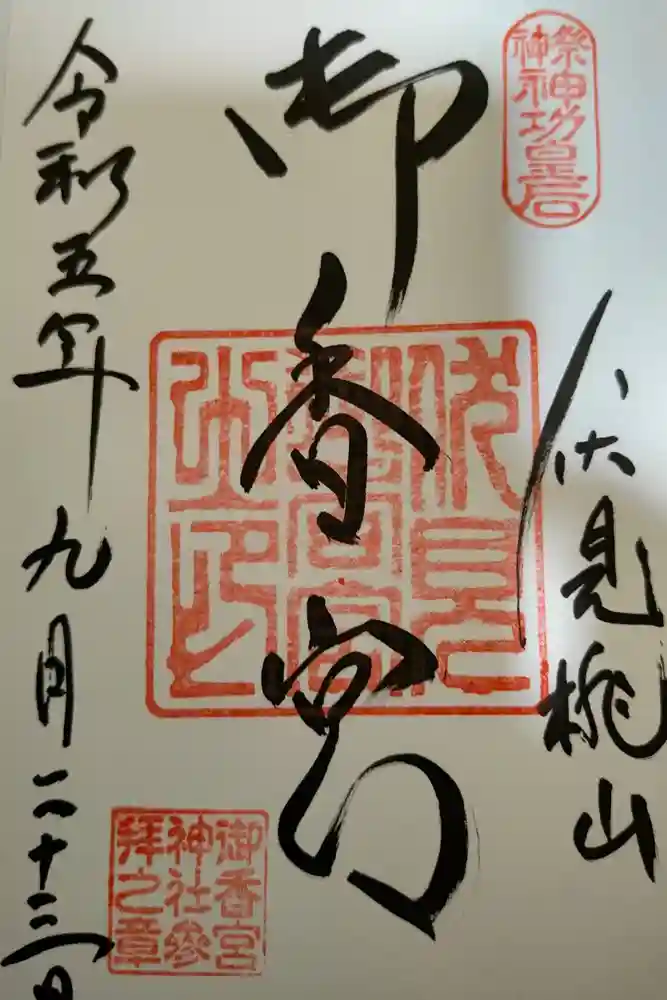 祭神
神功皇后
伏見桃山
御香宮
伏見
御香宮
之印
令和五年九月二十三日
御香宮
神社參
拜之章